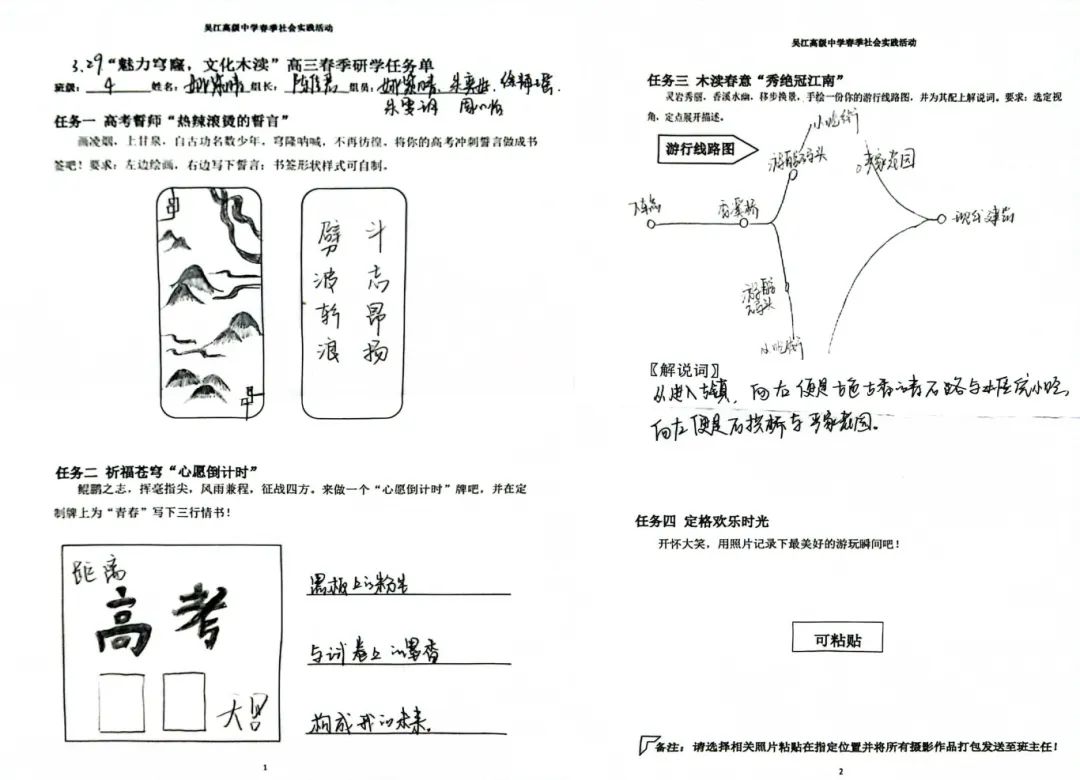 吴江高级中学春季社会实践活动
3.29“魅力穹窿，文化木渎”高三春季研学任务单
班级：4 姓名： 组长： 组员：
任务一 高考誓师“热辣滚烫的誓言”
画凌烟，上甘泉，自古功名数少年，穹隆呐喊，不再彷徨。将你的高考冲刺誓言做成书
签吧！要求：左边绘画，右边写下誓言；书签形状样式可自制。
斗志昂扬
劈波斩浪
任务二 祈福苍穹“心愿倒计时”
鲲鹏之志，挥毫指尖，风雨兼程，征战四方。来做一个“心愿倒计时”牌吧，并在定
制牌上为“青春”写下三行情书！
距离
高考
天
黑板上的粉笔
与试卷上的墨香
构成我的未来。
1
吴江高级中学春季社会实践活动
任务三 木渎春意“秀绝冠江南”
灵岩秀丽，香溪水幽，移步换景，手绘一份你的游行线路图，并为其配上解说词。要求：选定视
角，定点展开描述。
游行线路图
小吃街
游船码头
严家花园
下车点
香溪桥
现代建筑
游船
码头
小吃街
〖解说词〗
从进入古镇，向右便是古色古香的青石路与小吃，
向左便是石拱桥与严家花园。
任务四 定格欢乐时光
开怀大笑，用照片记录下最美好的游玩瞬间吧！
可粘贴
备注：请选择相关照片粘贴在指定位置并将所有摄影作品打包发送至班主任！
2